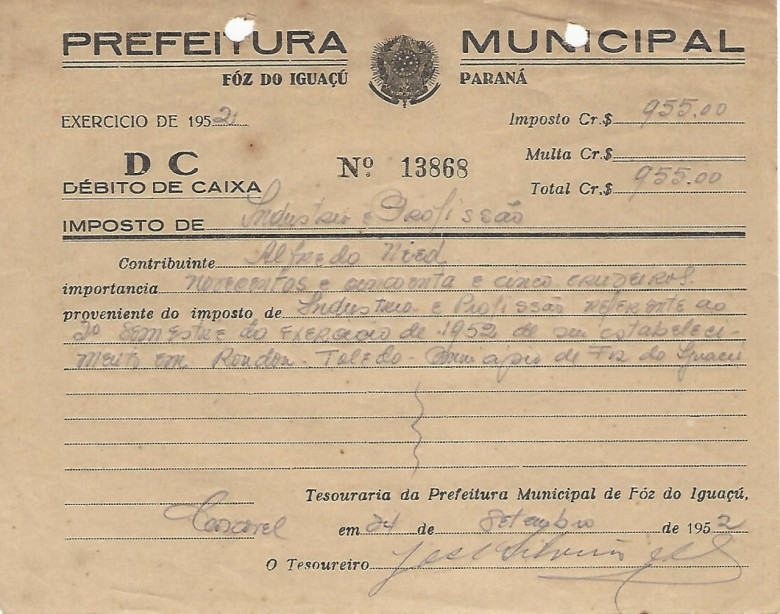 PREFEITURA MUNICIPAL
FÓZ DO IGUAÇÚ PARANÁ
EXERCICIO DE 1952
Imposto Cr.$ 955.00
Multa Cr.$
Total Cr.$ 955.00
D C
DÉBITO DE CAIXA
Nº 13868
IMPOSTO DE Industria e Profissão
Contribuinte Alfredo Nied
importancia Novecentos e cincoenta e cinco cruzeiros.
proveniente do imposto de Industria e Profissão referente ao
2º semestre do exercicio de 1952 de seu estabeleci-
mento em Rondon - Toledo - Municipio de Foz do Iguacú
Tesouraria da Prefeitura Municipal de Fóz do Iguaçú,
Cascavel em 24 de Setembro de 1952
O Tesoureiro